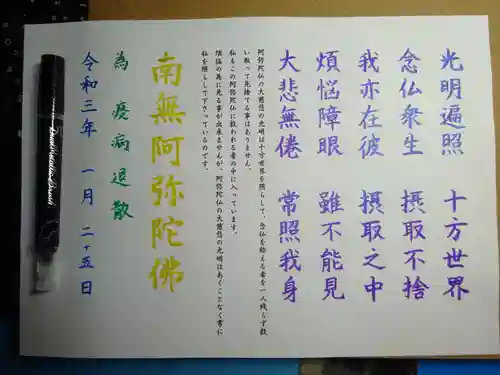 光明遍照　十方世界
念仏衆生　摂取不捨
我亦在彼　摂取之中
煩悩障眼　雖不能見
大悲無倦　常照我身
阿弥陀仏の大慈悲の光明は十方世界を照らして、念仏を称える者を一人残らず救
い取って見捨てる事はありません。
私もこの阿弥陀仏に救われる者の中に入っています。
煩悩の為に見る事が出来ませんが、阿弥陀仏の大慈悲の光明はあくことなく常に
私を照らして下さっているのです。
南無阿弥陀佛
為　疫病退散
令和三年　一月　二十五日